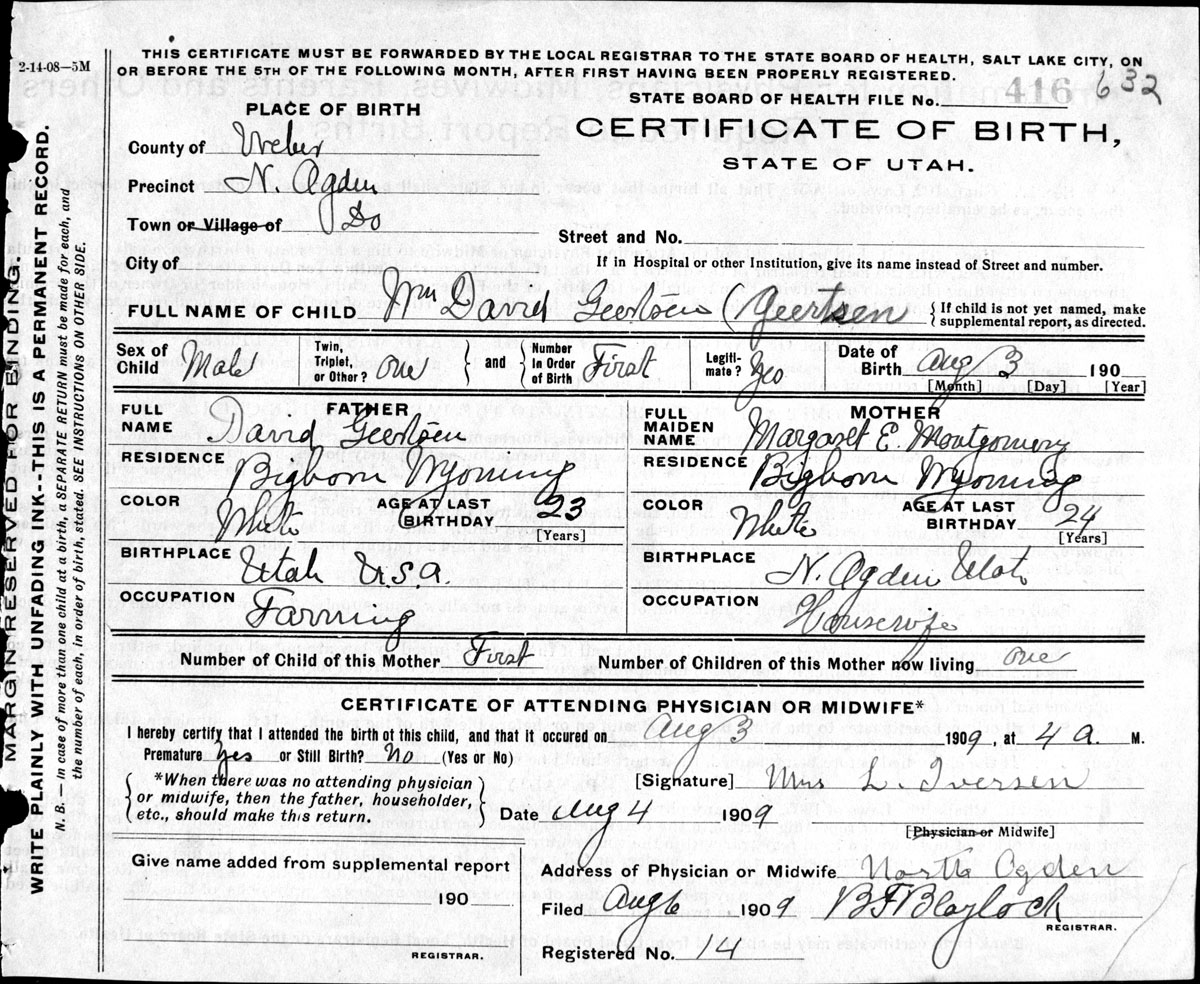 THIS CERTIFICATE MUST BE FORWARDED BY THE LOCAL REGISTRAR TO THE STATE BOARD OF HEALTH, SALT LAKE CITY, ON
2-14-08—5M
OR BEFORE THE 5TH OF THE FOLLOWING MONTH, AFTER FIRST HAVING BEEN PROPERLY REGISTERED.
STATE BOARD OF HEALTH FILE No. 416 632
PLACE OF BIRTH
CERTIFICATE OF BIRTH,
STATE OF UTAH.
County of Weber
Precinct N. Ogden
Town or Village of Do
Street and No.
City of
If in Hospital or other Institution, give its name instead of Street and number.
FULL NAME OF CHILD Wm David Geertsen (Geertsen
If child is not yet named, make
supplemental report, as directed.
Sex of Child Male
Twin, Triplet, or Other? one
and
Number in Order of Birth First
Legiti-mate? Yes
Date of Birth Aug 3 190
[Month] [Day] [Year]
FATHER
FULL NAME David Geertsen
RESIDENCE Bighorn Wyoming
COLOR White
AGE AT LAST BIRTHDAY 23
[Years]
BIRTHPLACE Utah U.S.A.
OCCUPATION Farming
MOTHER
FULL MAIDEN NAME Margaret E. Montgomery
RESIDENCE Bighorn Wyoming
COLOR White
AGE AT LAST BIRTHDAY 24
[Years]
BIRTHPLACE N. Ogden Utah
OCCUPATION Housewife
Number of Child of this Mother First
Number of Children of this Mother now living one
CERTIFICATE OF ATTENDING PHYSICIAN OR MIDWIFE*
I hereby certify that I attended the birth of this child, and that it occured on Aug 3 1909, at 4 a. M.
Premature Yes or Still Birth? No (Yes or No)
*When there was no attending physician
or midwife, then the father, householder,
etc., should make this return.
[Signature] Mrs L. Iversen
Date Aug 4 1909
[Physician or Midwife]
Give name added from supplemental report
190
REGISTRAR.
Address of Physician or Midwife North Ogden
Filed Aug 6, 1909 B F Blaylock
REGISTRAR.
Registered No. 14
MARGIN RESERVED FOR BINDING.
WRITE PLAINLY WITH UNFADING INK--THIS IS A PERMANENT RECORD.
N. B. — In case of more than one child at a birth, a SEPARATE RETURN must be made for each, and
the number of each, in order of birth, stated. SEE INSTRUCTIONS ON OTHER SIDE.